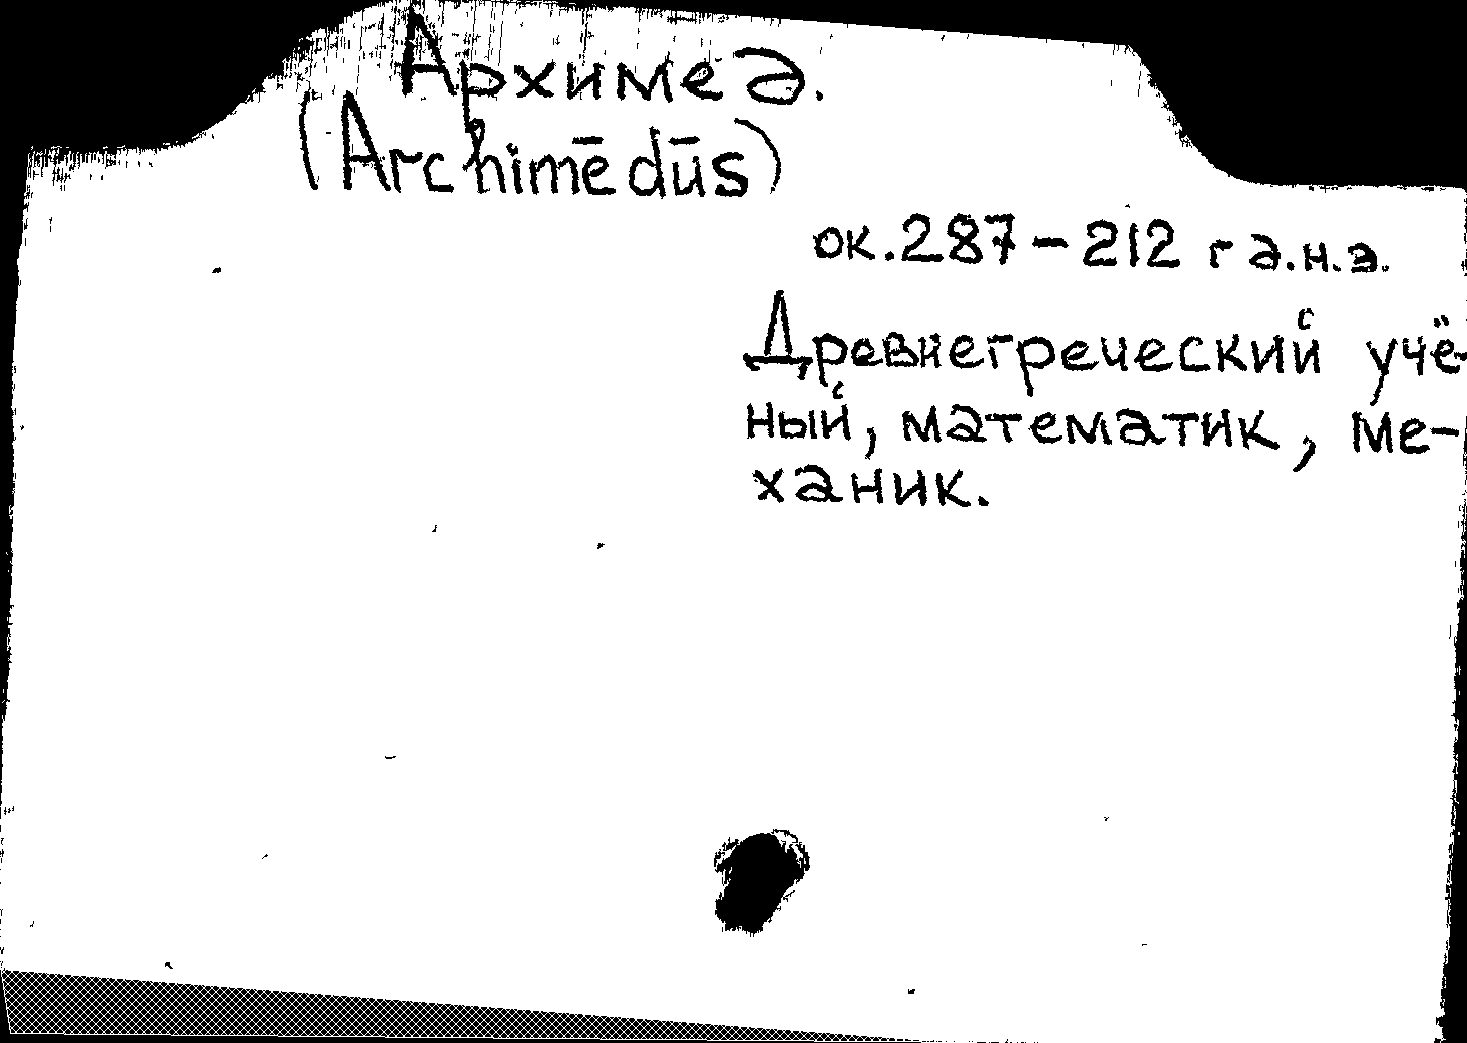 Архимед.
(Archimēdūs)
ок. 287 – 212 г д.н.э.
Древнегреческий учё-
ный, математик, ме-
ханик.